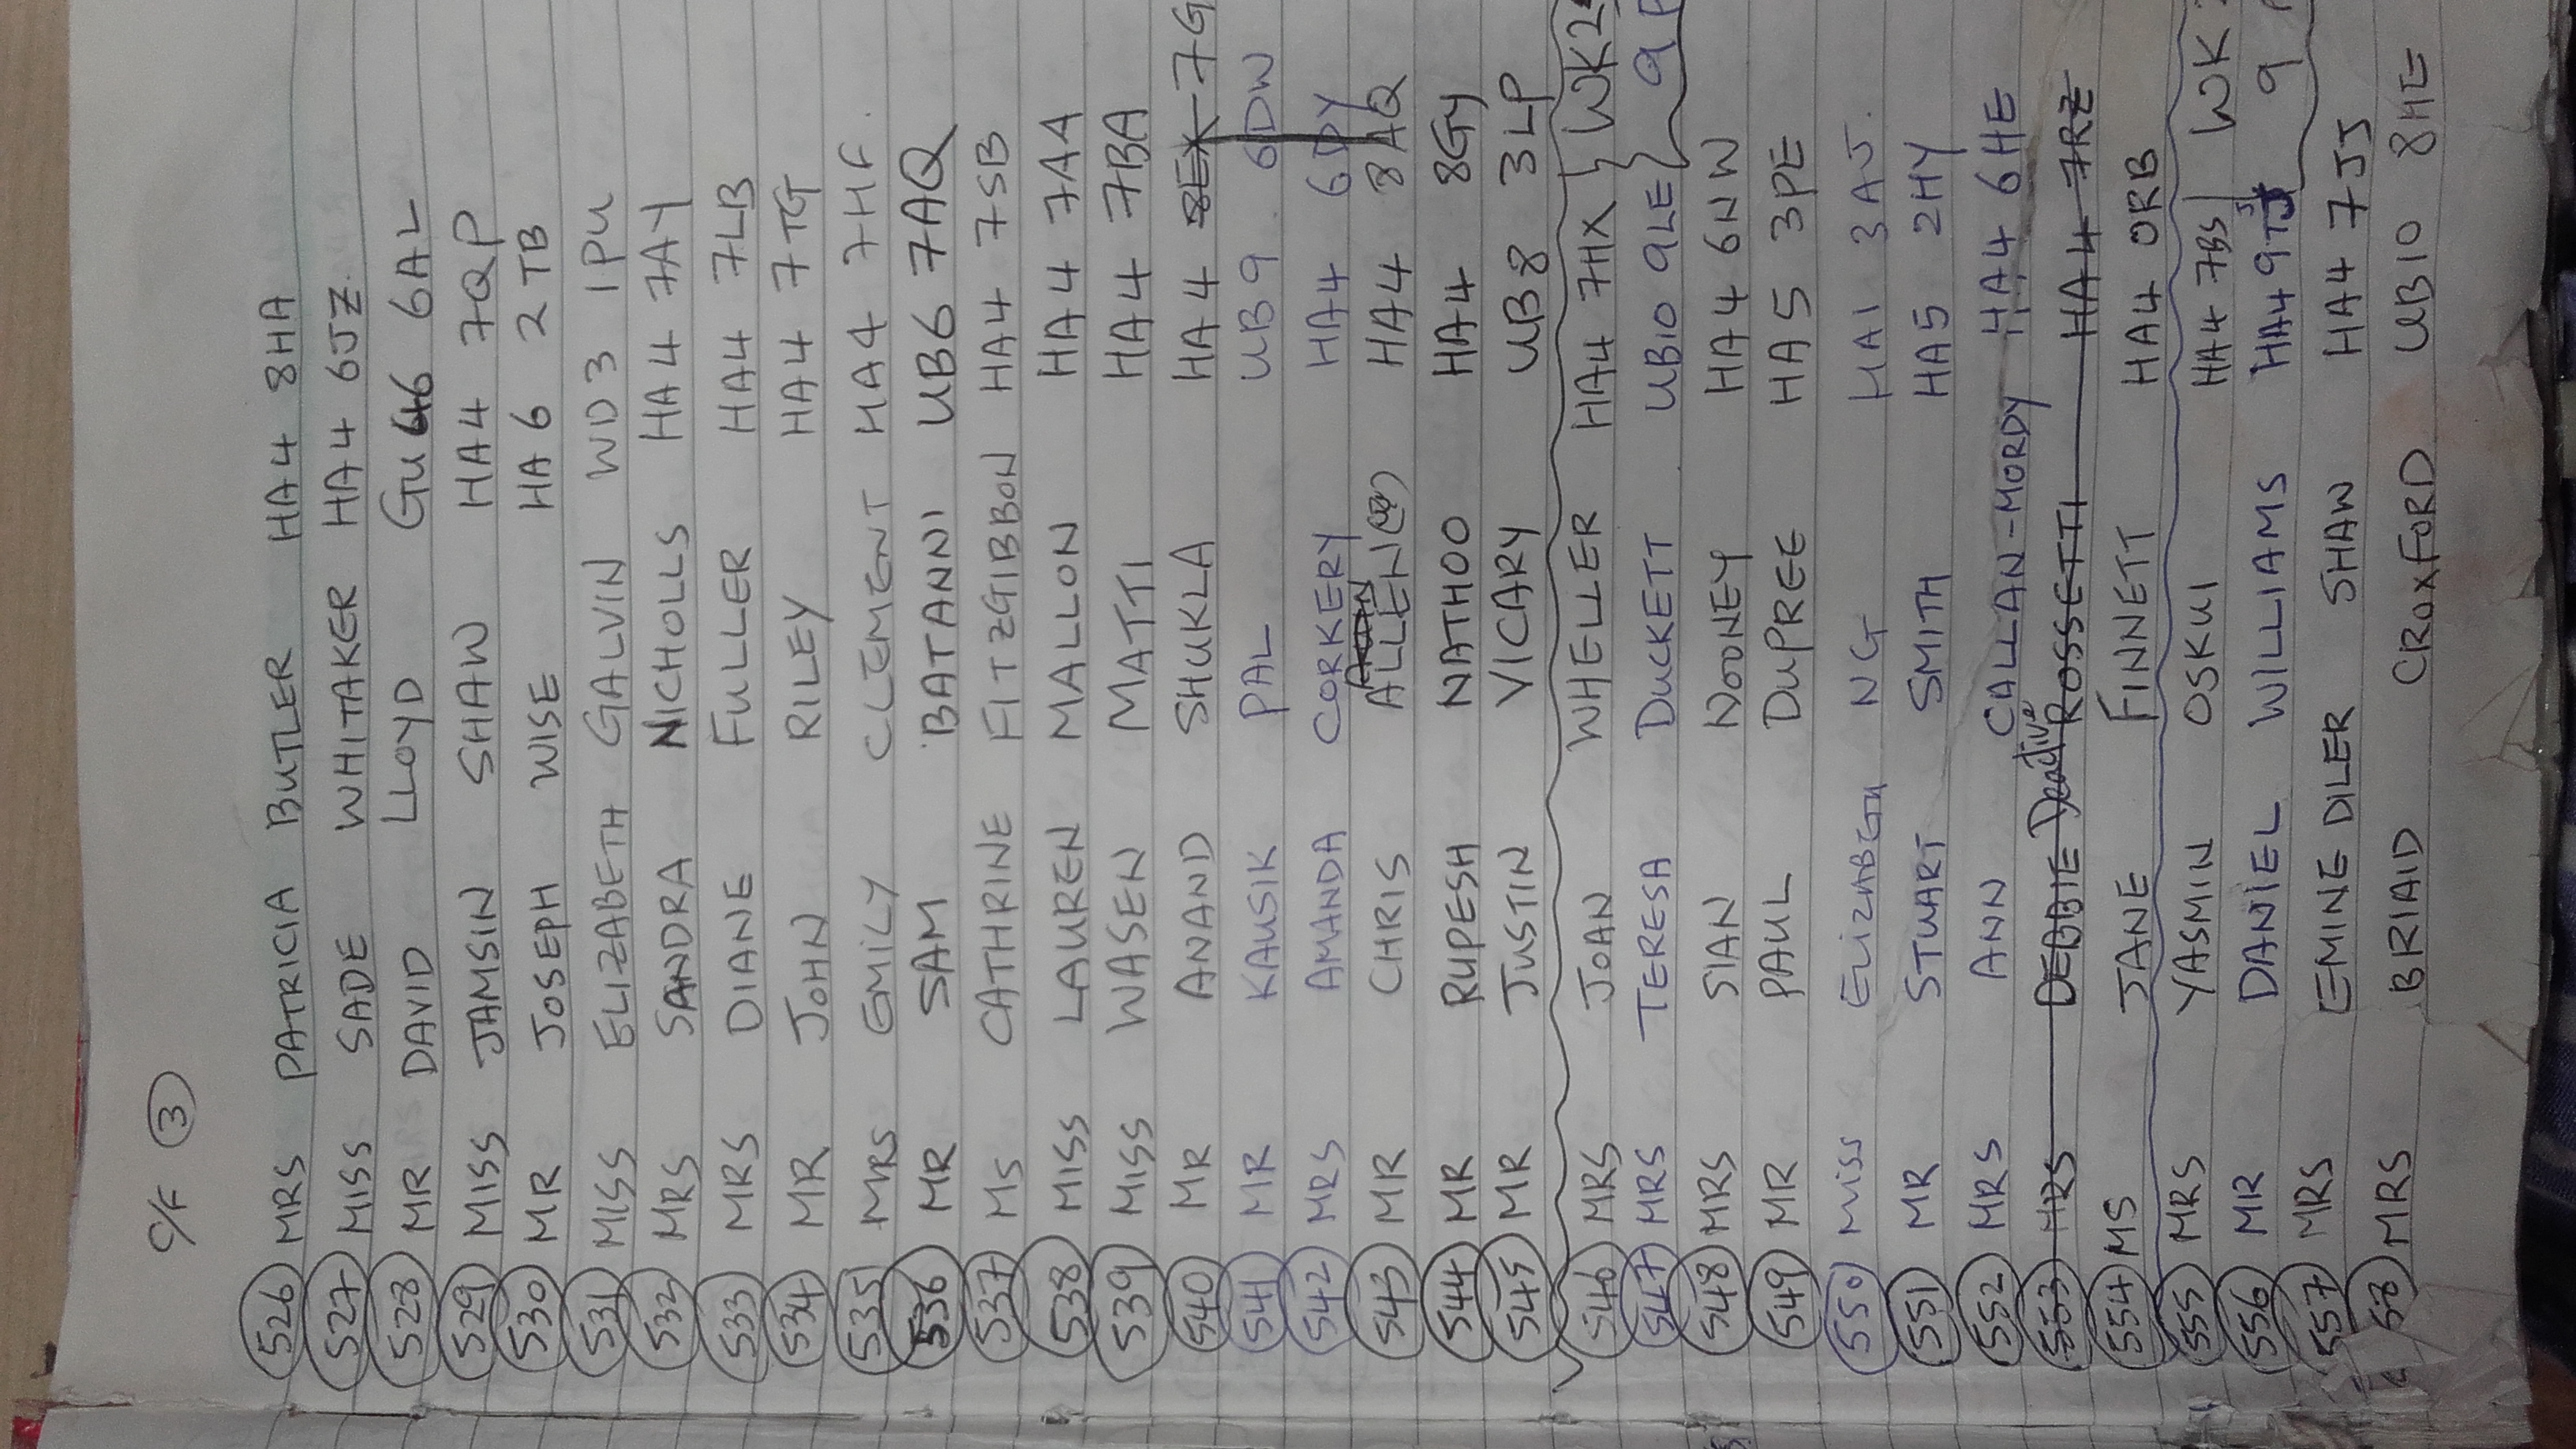 C/F 3
526 MRS PATRICIA BUTLER HA4 8HA
527 MISS SADE WHITAKER HA4 6JZ.
528 MR DAVID LLOYD GU46 6AL
529 MISS JAMSIN SHAW HA4 7QP
530 MR JOSEPH WISE HA6 2TB
531 MISS ELIZABETH GALVIN WD3 1PU
532 MRS SANDRA NICHOLLS HA4 7AY
533 MRS DIANE FULLER HA4 7LB
534 MR JOHN RILEY HA4 7TG
535 MRS EMILY CLEMENT HA4 7HF.
536 MR SAM BATANNI UB6 7AQ
537 MS CATHRINE FITZGIBBON HA4 7SB
538 MISS LAUREN MALLON HA4 7AA
539 MISS WASEN MATTI HA4 7BA
540 MR ANAND SHUKLA HA4 8EX 7G
541 MR KAUSIK PAL UB9 6DW
542 MRS AMANDA CORKERY HA4 6DY
543 MR CHRIS ALLEN HA4 8AQ
544 MR RUPESH NATHOO HA4 8GY
545 MR JUSTIN VICARY UB8 3LP
546 MRS JOAN WHELLER HA4 7HX WK2
547 MRS TERESA DUCKETT UB10 9LE 9
548 MRS SIAN NOONEY HA4 6NW
549 MR PAUL DUPREE HA5 3PE
550 MISS ELIZABETH NG HA1 3AJ.
551 MR STUART SMITH HA5 2HY
552 MRS ANN CALLAN-MORDY HA4 6HE
553 MRS DEBBIE Deactive ROSSETTI HA4 7RZ
554 MS JANE FINNETT HA4 0RB
555 MRS YASMIN OSKUI HA4 7BS WK
556 MR DANIEL WILLIAMS HA4 9TJ 9
557 MRS EMINE DILER SHAW HA4 7JJ
58 MRS BRIAID CROXFORD UB10 8HE